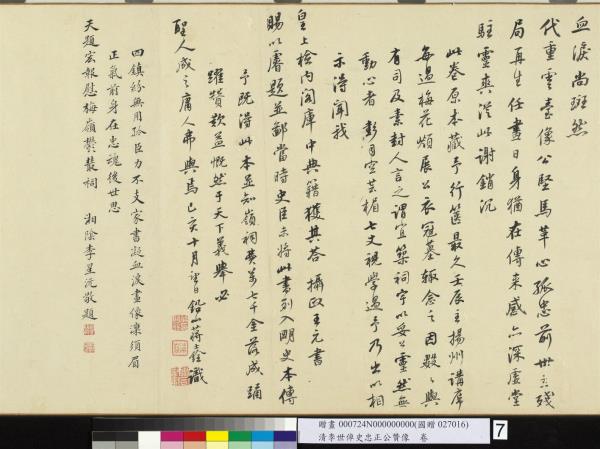 血淚尚斑然
代重雲臺像公堅馬革心孤忠前世立殘
局再生任畫日身猶在傳來感亦深虛堂
駐靈爽從此謝銷沉
此卷原本藏予行篋最久壬辰主揚州講席
每過梅花嶺展公衣冠墓輒念之因數數與
有司及素封人言之謂宜築祠宇以妥公靈然無
動心者彭司空芸楣七丈視學過予乃出以相
示得聞我
皇上檢內閣庫中典籍獲其答攝政王元書
賜以睿題並鄙當時史臣未將此書列入明史本傳
予既得此本並知嶺祠費萬七千金落成踊
躍贊歎益慨然于天下義舉必
聖人成之庸人弗與焉己亥十月望日鉛山蔣士銓識
四鎮紛無用孤臣力不支家書凝血淚畫像凜須眉
正氣前身在忠魂後世思
天題宏報慰梅嶺鬱叢祠 湘陰李星沅敬題
贈畫 000724N000000000(國贈 027016)
清李世倬史忠正公贊像 卷
7